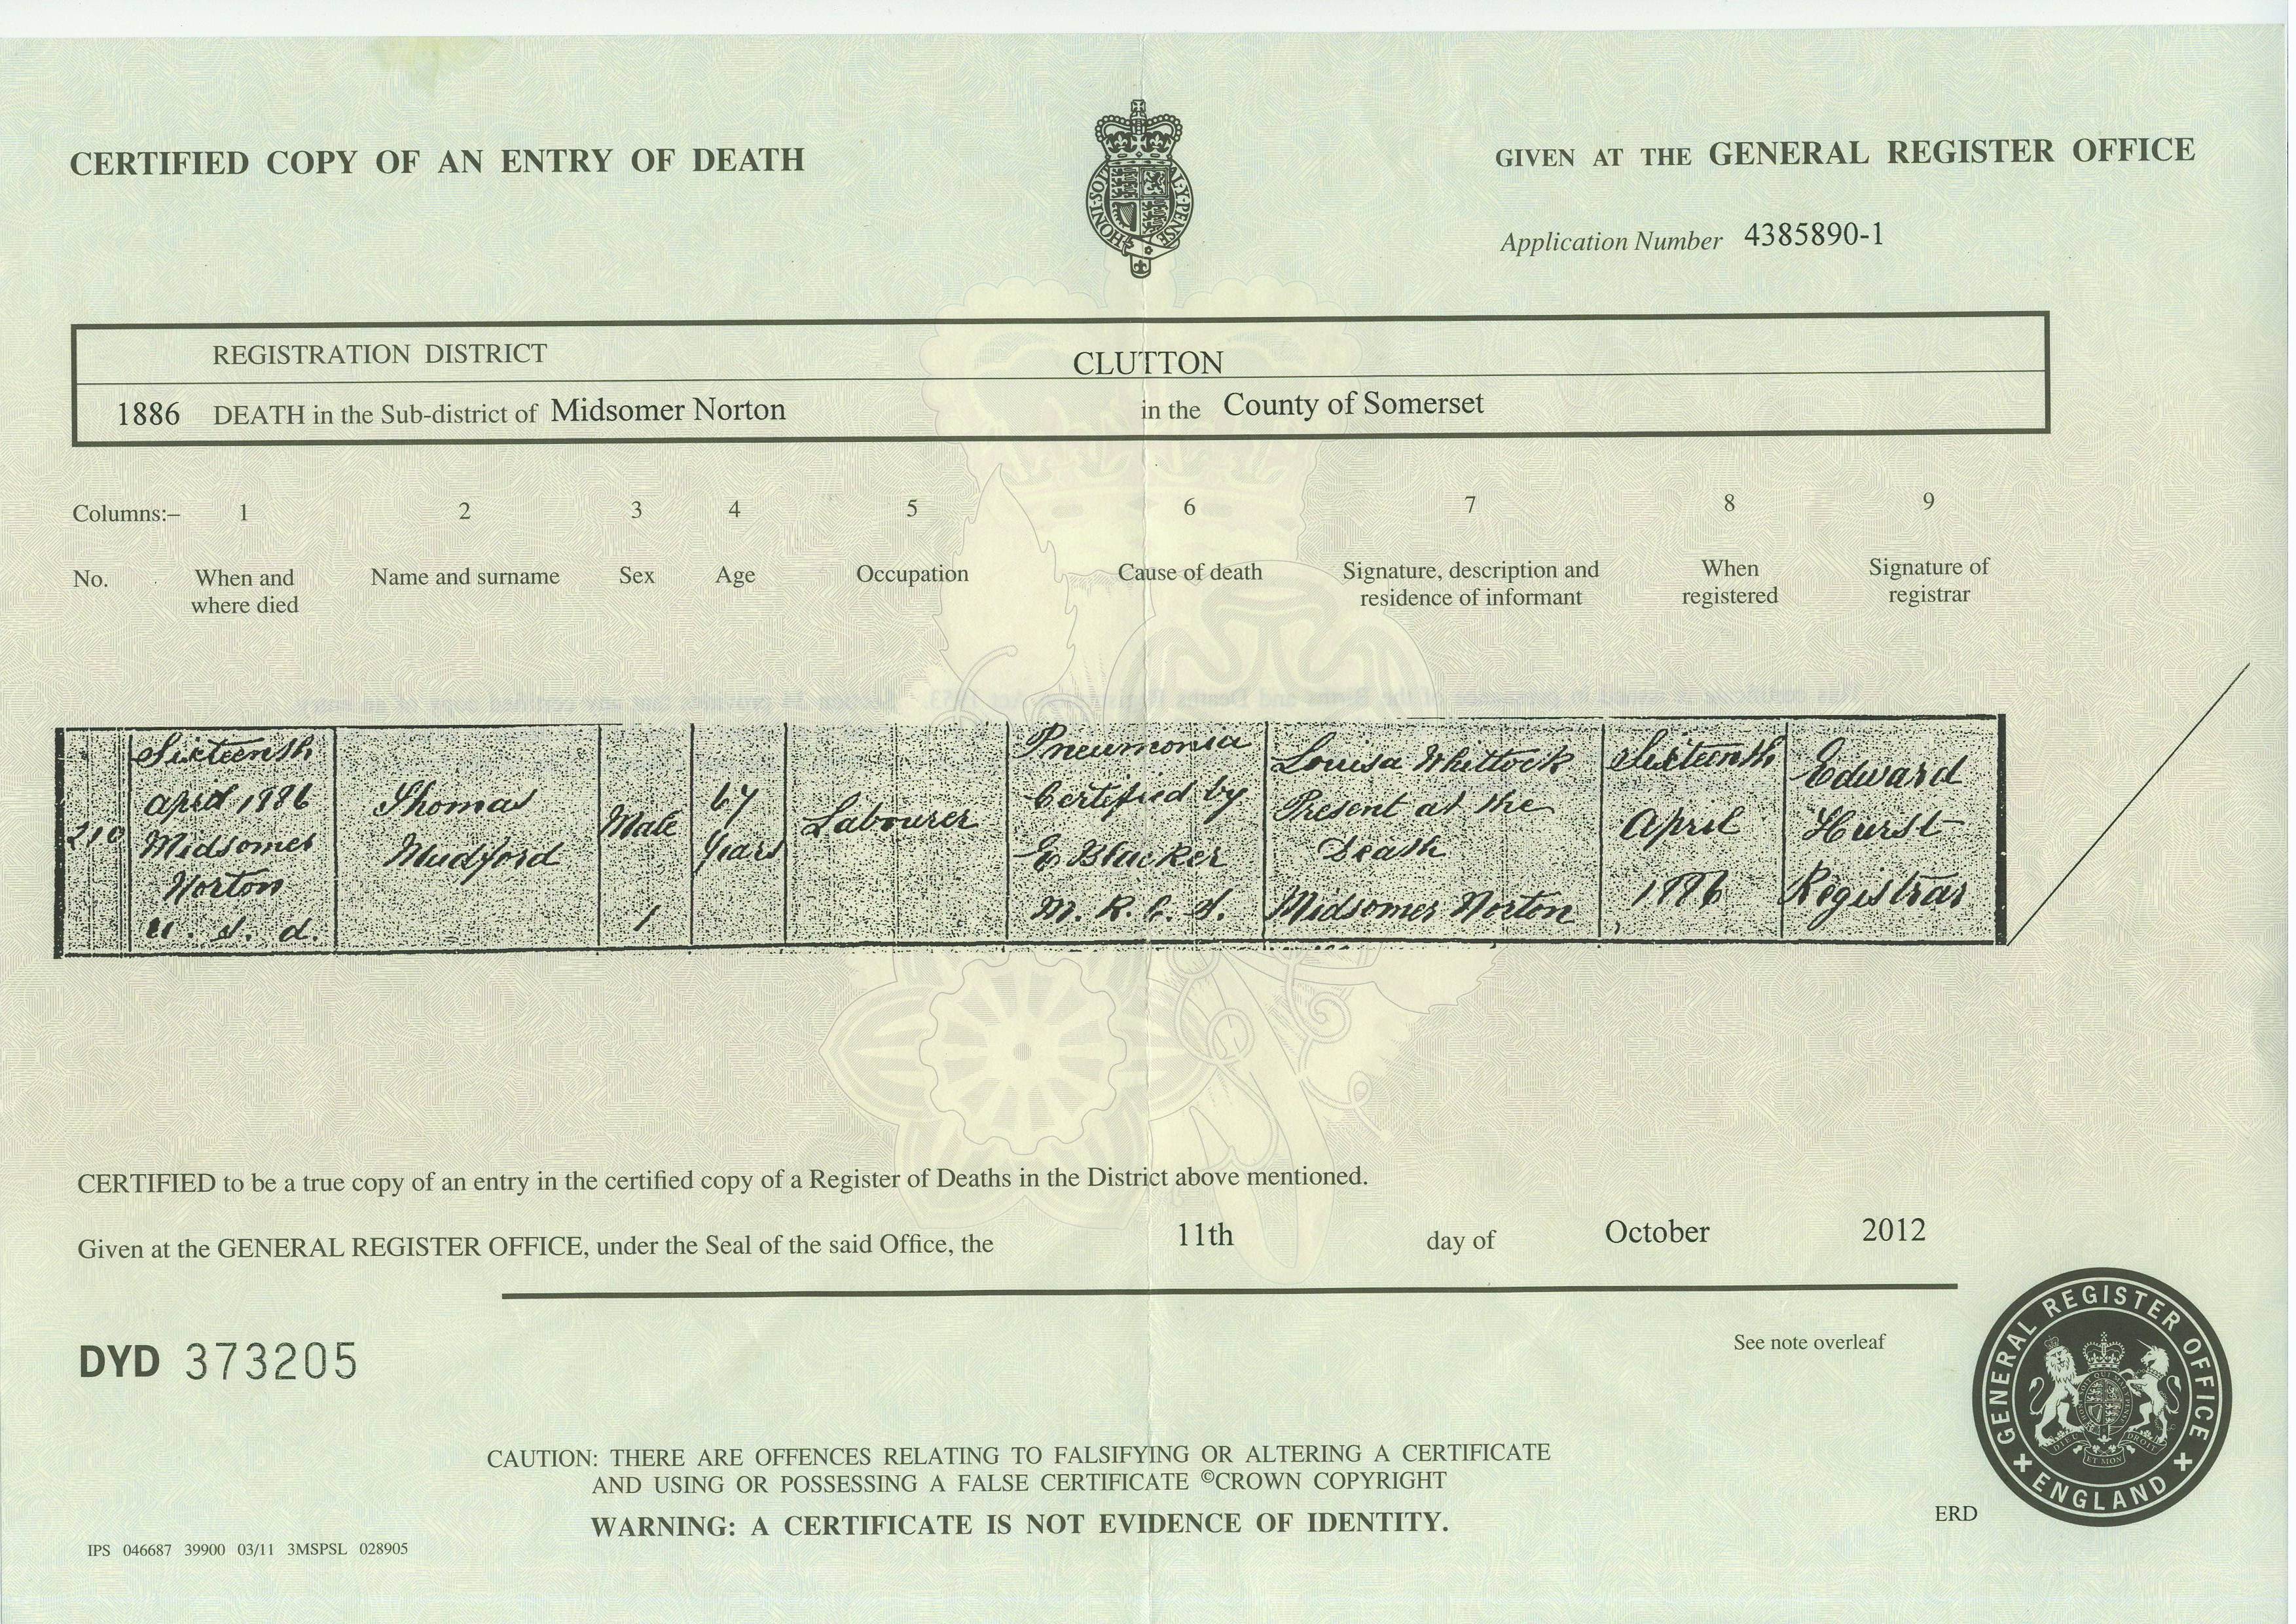 CERTIFIED COPY OF AN ENTRY OF DEATH
GIVEN AT THE GENERAL REGISTER OFFICE
HONI·SOIT
L·Y·PENSE
Application Number 4385890-1
REGISTRATION DISTRICT CLUTTON
1886 DEATH in the Sub-district of Midsomer Norton in the County of Somerset
Columns:– 1 2 3 4 5 6 7 8 9
No. When and where died
Name and surname
Sex
Age
Occupation
Cause of death
Signature, description and residence of informant
When registered
Signature of registrar
210
Sixteenth
April 1886
Midsomer
Norton
U. S. d.
Thomas
Mudford
Male
67
Years
Labourer
Pneumonia
Certified by
E Blacker
M. R. C. S.
Louisa Whittock
Present at the
Death
Midsomer Norton
Sixteenth
April
1886
Edward
Hurst
Registrar
CERTIFIED to be a true copy of an entry in the certified copy of a Register of Deaths in the District above mentioned.
Given at the GENERAL REGISTER OFFICE, under the Seal of the said Office, the 11th day of October 2012
DYD 373205
See note overleaf
GENERAL REGISTER OFFICE
ENGLAND
CAUTION: THERE ARE OFFENCES RELATING TO FALSIFYING OR ALTERING A CERTIFICATE
AND USING OR POSSESSING A FALSE CERTIFICATE ©CROWN COPYRIGHT
WARNING: A CERTIFICATE IS NOT EVIDENCE OF IDENTITY.
ERD
IPS 046687 39900 03/11 3MSPSL 028905